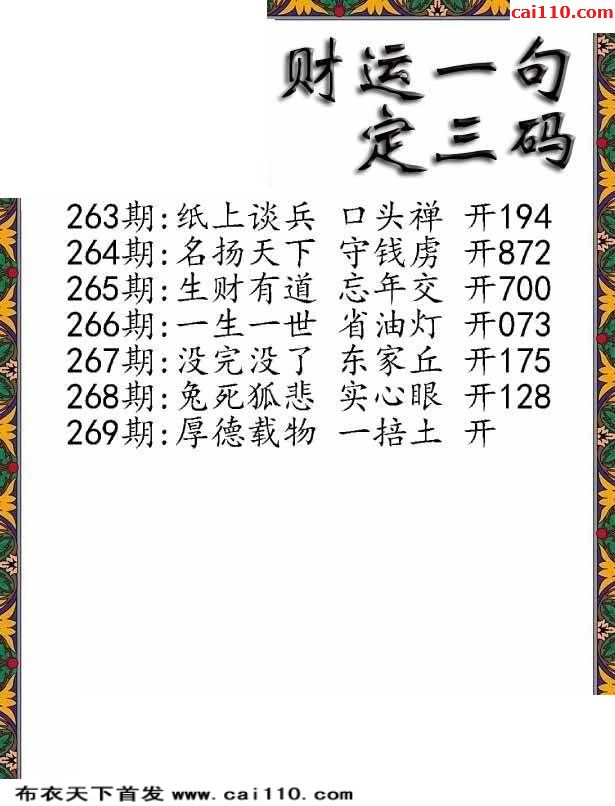 cai110.com
财运一句
定三码
263期:纸上谈兵 口头禅 开194
264期:名扬天下 守钱虏 开872
265期:生财有道 忘年交 开700
266期:一生一世 省油灯 开073
267期:没完没了 东家丘 开175
268期:兔死狐悲 实心眼 开128
269期:厚德载物 一掊土 开
布衣天下首发 www.cai110.com